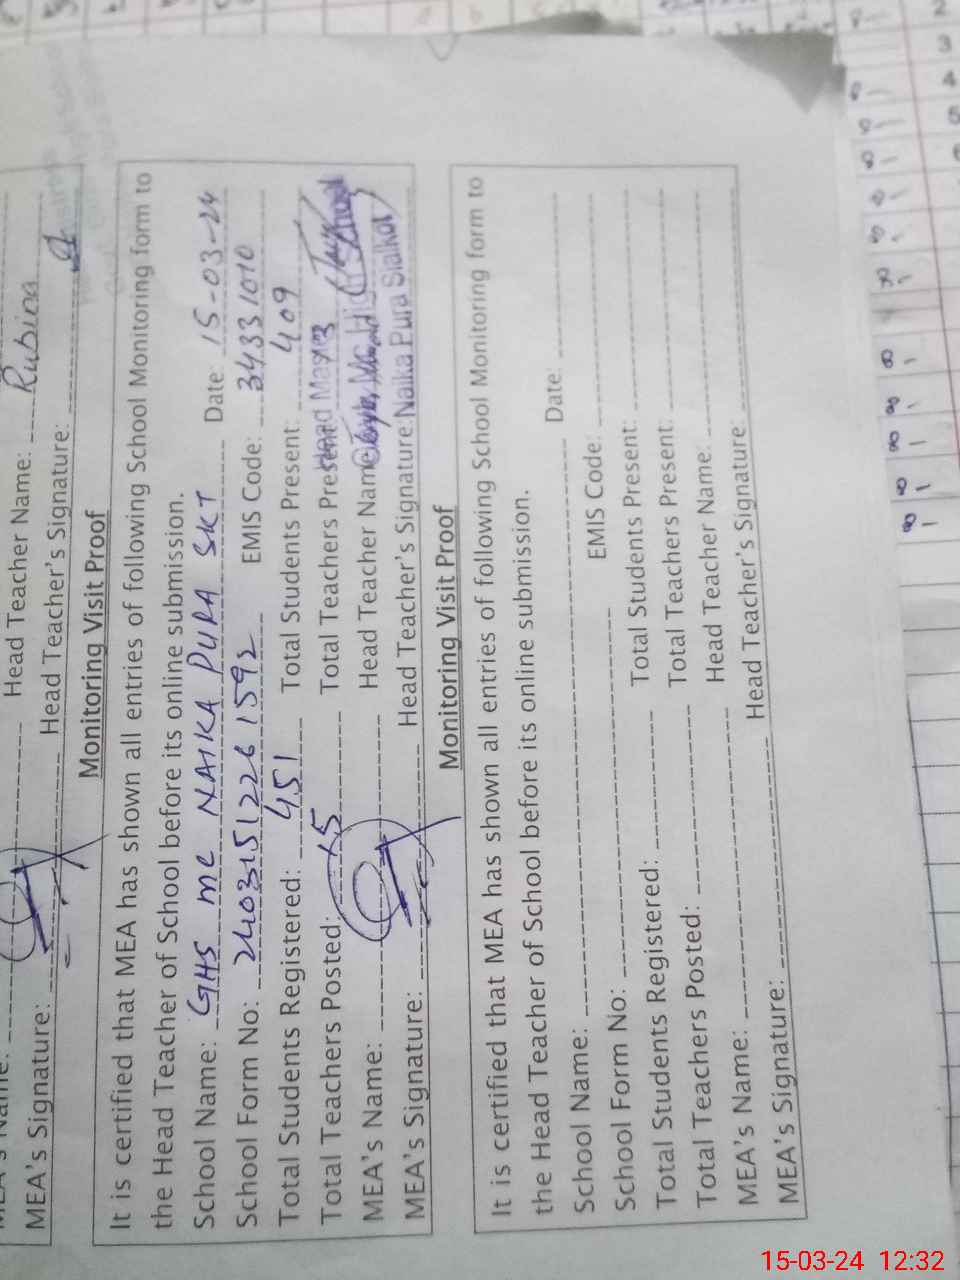 Head Teacher Name: Rubina
MEA's Signature: Head Teacher's Signature:
Monitoring Visit Proof
It is certified that MEA has shown all entries of following School Monitoring form to
the Head Teacher of School before its online submission.
School Name: GHS MC NAIKA PURA SKT Date: 15-03-24
School Form No: 24031512261592 EMIS Code: 34331010
Total Students Registered: 451 Total Students Present: 409
Total Teachers Posted: 15 Total Teachers Present: 13
MEA's Name: Head Teacher Name:
MEA's Signature: Head Teacher's Signature: Naika Pura Sialkot
Monitoring Visit Proof
It is certified that MEA has shown all entries of following School Monitoring form to
the Head Teacher of School before its online submission.
School Name: Date:
School Form No: EMIS Code:
Total Students Registered: Total Students Present:
Total Teachers Posted: Total Teachers Present:
MEA's Name: Head Teacher Name:
MEA's Signature: Head Teacher's Signature:
15-03-24 12:32